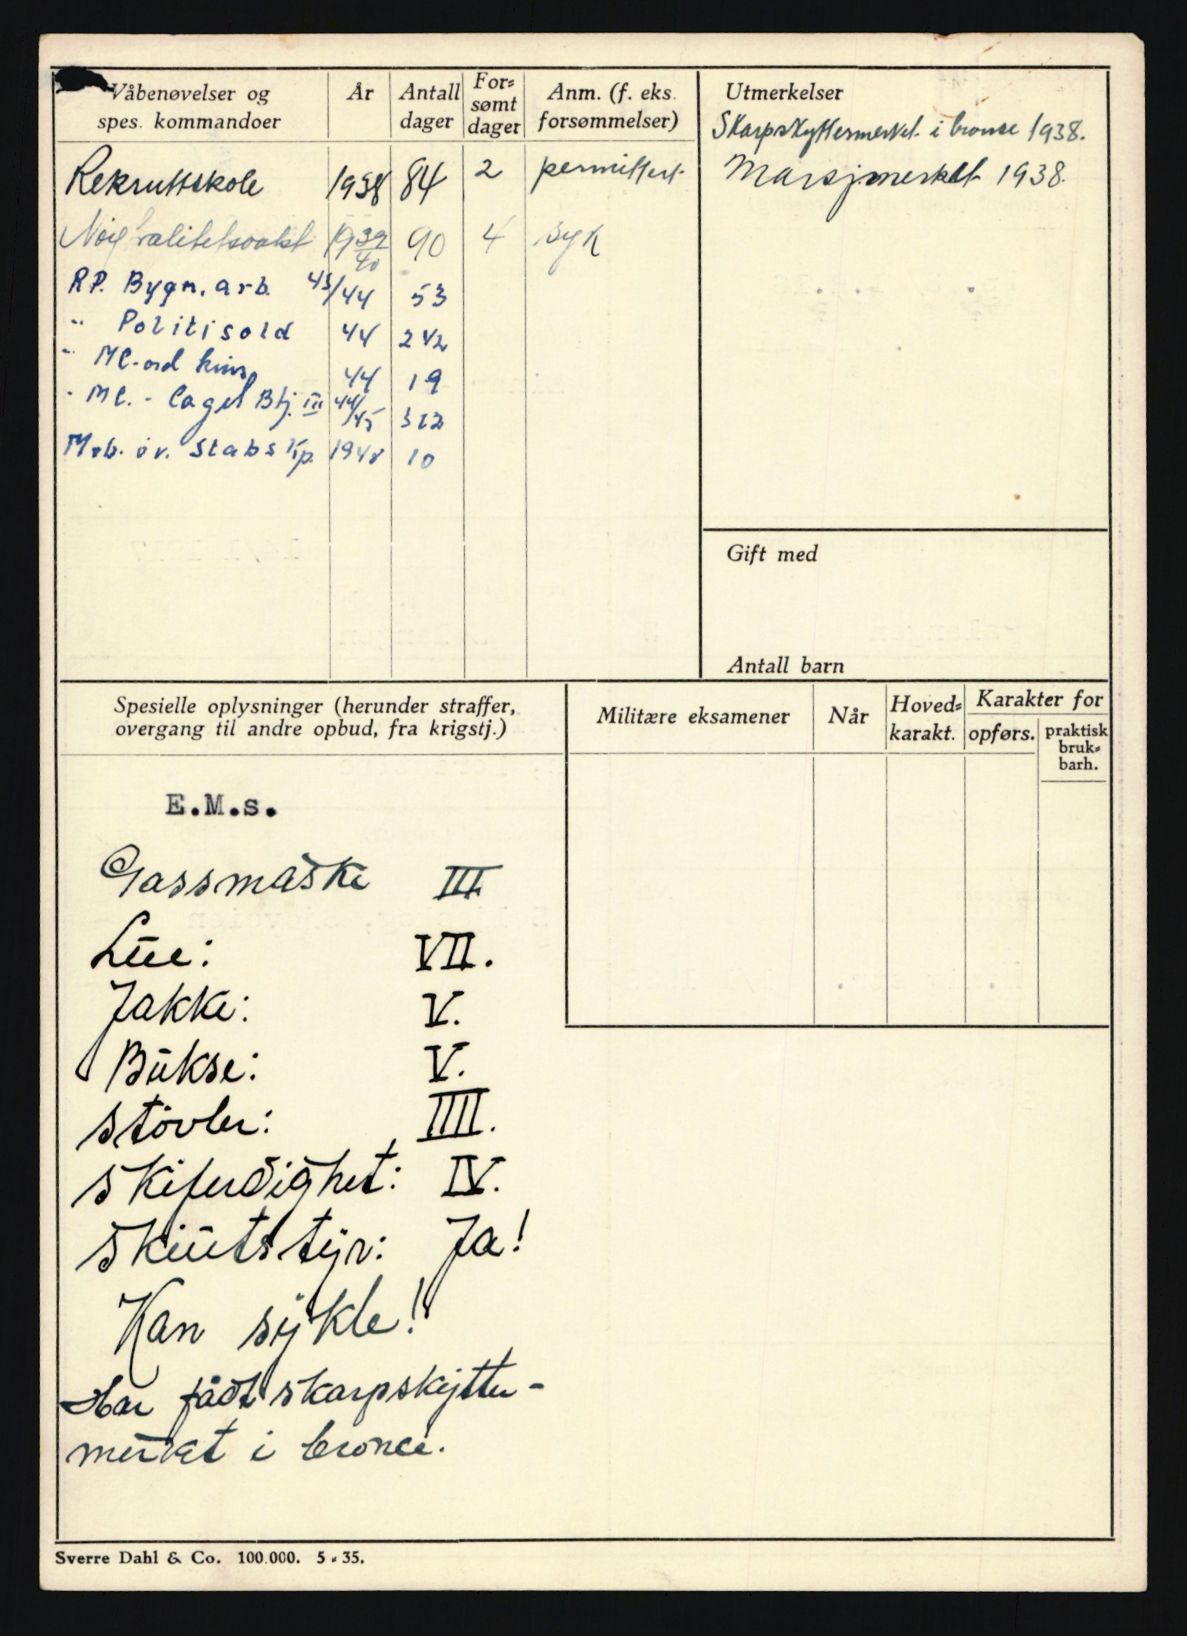 Våbenøvelser og spes. kommandoer | År | Antall dager | For=sømt dager | Anm. (f. eks. forsømmelser)
Rekruttskole 1938 84 2 permittert
Nøitralitetsvakt 1939/40 90 4 syk
RP. Bygn. arb. 43/44 53
" Politisold 44 242
" MC-ord kurs 44 19
" MC. - Laget Btj. III 44/45 312
Mob. øv. Stabs Kp. 1948 10
Utmerkelser
Skarpskyttermerket i bronse 1938.
Marsjmerket 1938.
Gift med
Antall barn
Spesielle oplysninger (herunder straffer,
overgang til andre opbud, fra krigstj.)
E.M.s.
Gassmaske III
Lue: VII.
Jakke: V.
Bukse: V.
Støvler: IIII.
Skiferdighet: IV.
Skiutstyr: Ja!
Kan sykle!
Har fådt skarpskytter-
merket i bronce.
Militære eksamener | Når | Hoved=karakt. | Karakter for
opførs. | praktisk bruk=barh.
Sverre Dahl & Co. 100.000. 5 - 35.